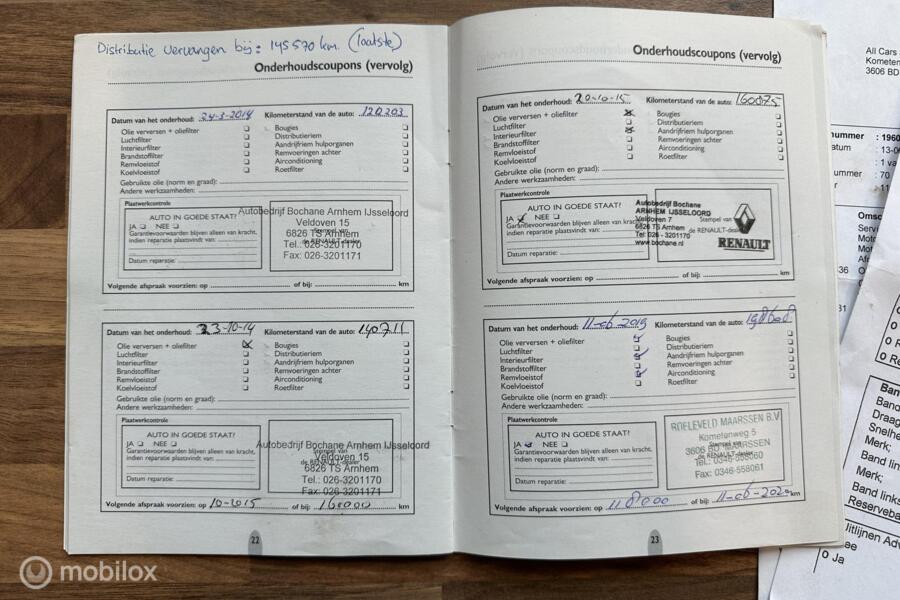 Distributie vervangen bij: 145570 km. (laatste)
Onderhoudscoupons (vervolg)
Datum van het onderhoud: 24-3-2014 Kilometerstand van de auto: 120203
Olie verversen + oliefilter
Luchtfilter
Interieurfilter
Brandstoffilter
Remvloeistof
Koelvloeistof
Bougies
Distributieriem
Aandrijfriem hulporganen
Remvoeringen achter
Airconditioning
Roetfilter
Gebruikte olie (norm en graad):
Andere werkzaamheden:
Plaatwerkcontrole
AUTO IN GOEDE STAAT?
JA NEE
Garantievoorwaarden blijven alleen van kracht,
indien reparatie plaatsvindt van:
Datum reparatie:
Autobedrijf Bochane Arnhem IJsseloord
Veldoven 15
6826 TS Arnhem
de RENAULT-dealer
Tel.: 026-3201170
Fax: 026-3201171
Volgende afspraak voorzien: op of bij: km
Datum van het onderhoud: 23-10-14 Kilometerstand van de auto: 140711
Olie verversen + oliefilter
Luchtfilter
Interieurfilter
Brandstoffilter
Remvloeistof
Koelvloeistof
Bougies
Distributieriem
Aandrijfriem hulporganen
Remvoeringen achter
Airconditioning
Roetfilter
Gebruikte olie (norm en graad):
Andere werkzaamheden:
Plaatwerkcontrole
AUTO IN GOEDE STAAT?
JA NEE
Garantievoorwaarden blijven alleen van kracht,
indien reparatie plaatsvindt van:
Datum reparatie:
Stempel van
Autobedrijf Bochane Arnhem IJsseloord
Veldoven 15
de RENAULT-dealer
6826 TS Arnhem
Tel.: 026-3201170
Fax: 026-3201171
Volgende afspraak voorzien: op 10-2015 of bij: 160000 km
22
Onderhoudscoupons (vervolg)
Datum van het onderhoud: 20-10-15 Kilometerstand van de auto: 160075
Olie verversen + oliefilter
Luchtfilter
Interieurfilter
Brandstoffilter
Remvloeistof
Koelvloeistof
Bougies
Distributieriem
Aandrijfriem hulporganen
Remvoeringen achter
Airconditioning
Roetfilter
Gebruikte olie (norm en graad):
Andere werkzaamheden:
Plaatwerkcontrole
AUTO IN GOEDE STAAT?
JA NEE
Garantievoorwaarden blijven alleen van kracht,
indien reparatie plaatsvindt van:
Datum reparatie:
Autobedrijf Bochane
ARNHEM IJSSELOORD
Veldoven 7
Stempel van
6826 TS Arnhem
de RENAULT-dealer
Tel: 026 - 3201170
www.bochane.nl
RENAULT
Volgende afspraak voorzien: op of bij: km
Datum van het onderhoud: 11-feb-2019 Kilometerstand van de auto:
Olie verversen + oliefilter
Luchtfilter
Interieurfilter
Brandstoffilter
Remvloeistof
Koelvloeistof
Bougies
Distributieriem
Aandrijfriem hulporganen
Remvoeringen achter
Airconditioning
Roetfilter
Gebruikte olie (norm en graad):
Andere werkzaamheden:
Plaatwerkcontrole
AUTO IN GOEDE STAAT?
JA NEE
Garantievoorwaarden blijven alleen van kracht,
indien reparatie plaatsvindt van:
Datum reparatie:
ROELEVELD MAARSSEN B.V
Kometenweg 5
Stempel van
3606 BD MAARSSEN
de RENAULT-dealer
Tel.: 0346-558060
Fax: 0346-558061
Volgende afspraak voorzien: op of bij: 11-feb-2020 km
23
All Cars
Kometen
3606 BD
nummer : 1960
datum : 13-0
: 1 va
nummer : 70
: 11
Omsc
Servi
Moto
Moto
36
31
Band
Draag
Snelhe
Merk;
Band links
Merk;
Band links
Reserveba
Uitlijnen Adv
ee
o Ja
mobilox